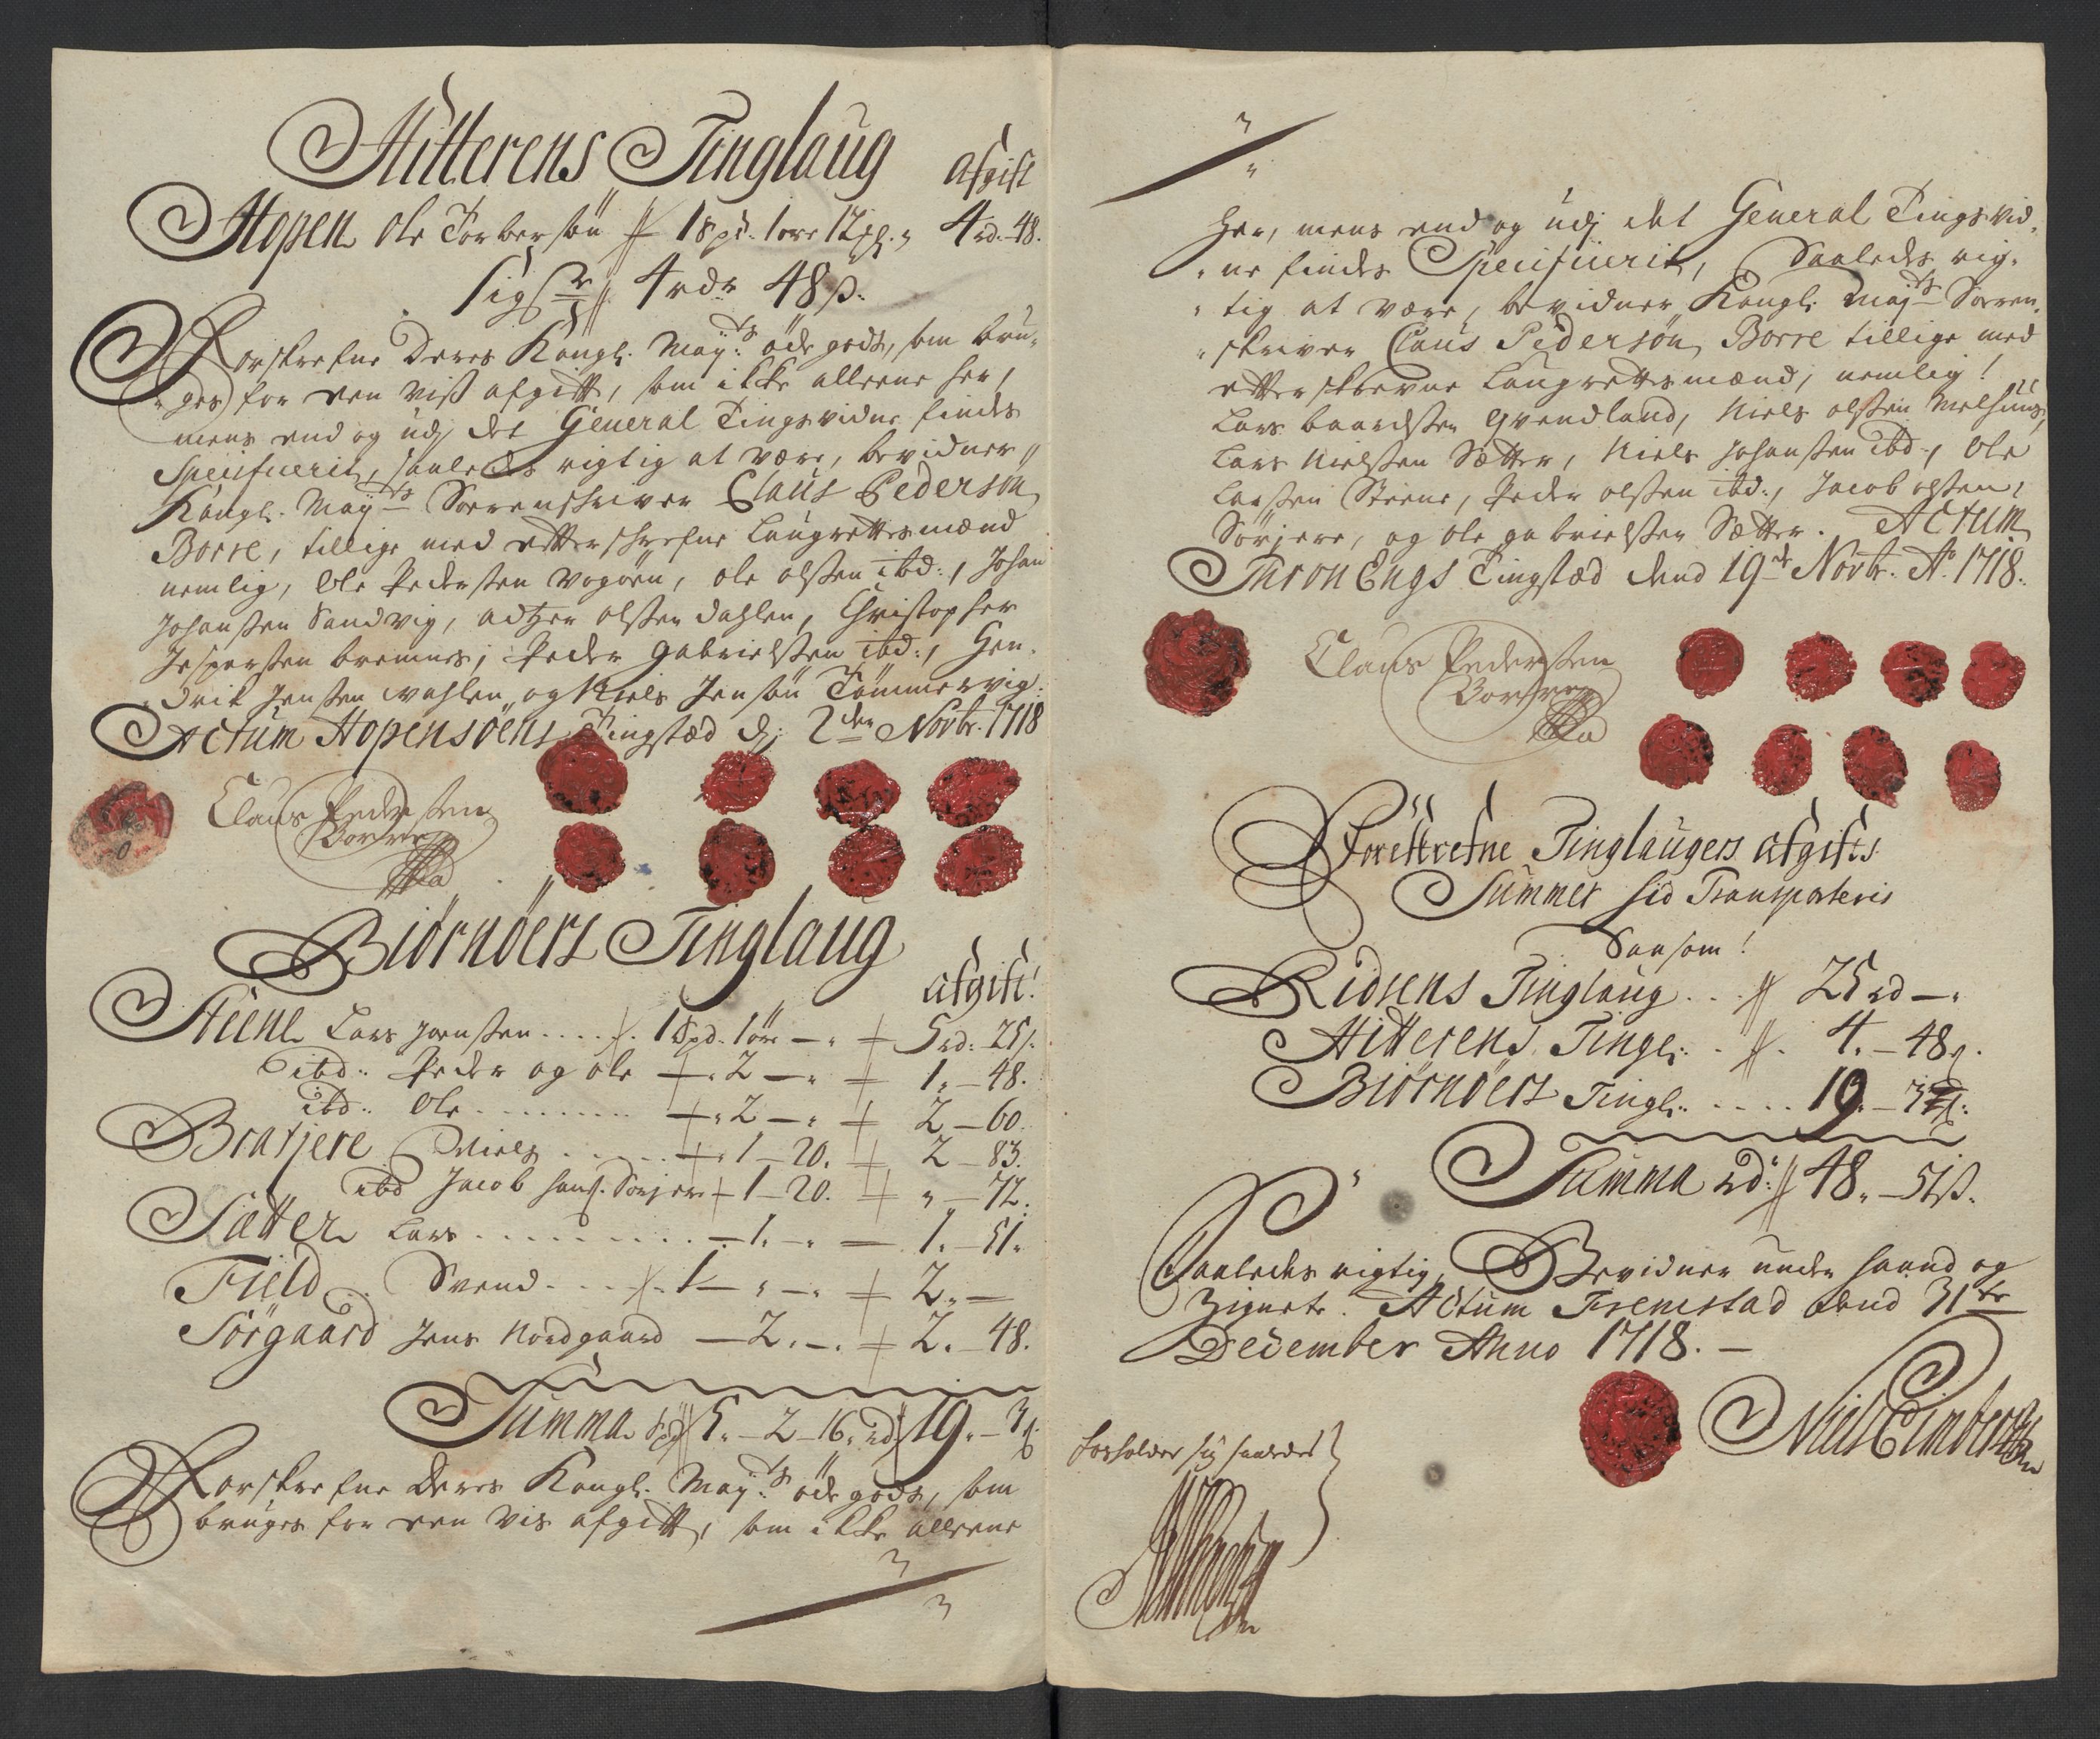 Hitterens Tinglaug
afgift
Hopen Ole Torbersøn 1 spd. 1 øre 12 ₰. 4 rd. 48.
Siger 4 rdr 48 ß.
Forskrefne Deres Kongl. May.ts øde godts, som bru-
ges for een viss afgift, som ikke alleene her,
mens end og udj det General Tingsvidne findes
Specificerit, saaledes rigtig at være, bevidner
Kongl. May.ts Sorenskriver Claus Pedersøn
Borre, tillige med efterskrefne Laugrettesmænd
nemlig, Ole Pedersen Vogøen, Ole Olsen ibd:, Johan
Johansen Sandvig, Adtzer Olsen Dahlen, Christopher
Jespersen Bremnes, Peder Gabrielsen ibd:, Hen-
drik Jensen Vahlen, og Niels Jensøn Tømmervig.
Actum Hopensøens Tingstæd d. 2den Novbr. 1718
Claus Pedersen
Borre
Biørnøers Tinglaug
afgift!
Steene Lars Joensen .... 1 Spd. 1 øre — 5 rd: 25 ß.
ibd: Peder og Ole — 2 — 1. — 48.
ibd: Ole ........ — 2 — 2 — 60.
Bratjere Niels ..... 1 — 20. 2 — 83.
ibd Jacob Hans. Sørjer 1 — 20. „ — 72.
Sætter Lars ......... — 1. — 1. — 51.
Field Svend .... 1 — „ — 2. —
Sørgaard Jens Nordgaard — 2. — 2. — 48.
Summa spd 5. — 2 — 16. rd 19. — 3 ß.
Forskrefne Deres Kongl. May.ts øde gods, som
bruges for een vis afgift, som ikke alleene
her, mens end og udj det General Tingsvid-
ne findes Specificerit, Saaledes rig-
tig at være, bevidner Kongl. May.ts Soren-
skriver Claus Pedersøn Borre tillige med
efterskrevne Laugrettesmænd, nemlig!
Lars Baardsen Qvendland, Niels Olsen Melsuug,
Lars Nielsen Sætter, Niels Johansen ibd., Ole
Larsen Steene, Peder Olsen ibd:, Jacob Olsen
Sørjere, og Ole Gabrielsen Sætter. Actum
Thron Engs Tingstæd dend 19de Novbr. Ao. 1718.
Claus Pedersen
Borre
Foreskrefne Tinglaugers afgifts
Summer hid Transporteris
Saasom!
Ridsens Tinglaug ... 25 rd —
Hitterens Tingl: . 4. — 48 ß.
Biørnøers Tingl: .... 19. — 3 ß.
Summa rd: 48. — 51 ß.
Saaledes rigtig, Bevidner under haand og
Zignete. Actum Fremstad dend 31te
December Anno 1718. —
Forholder sig saaledes